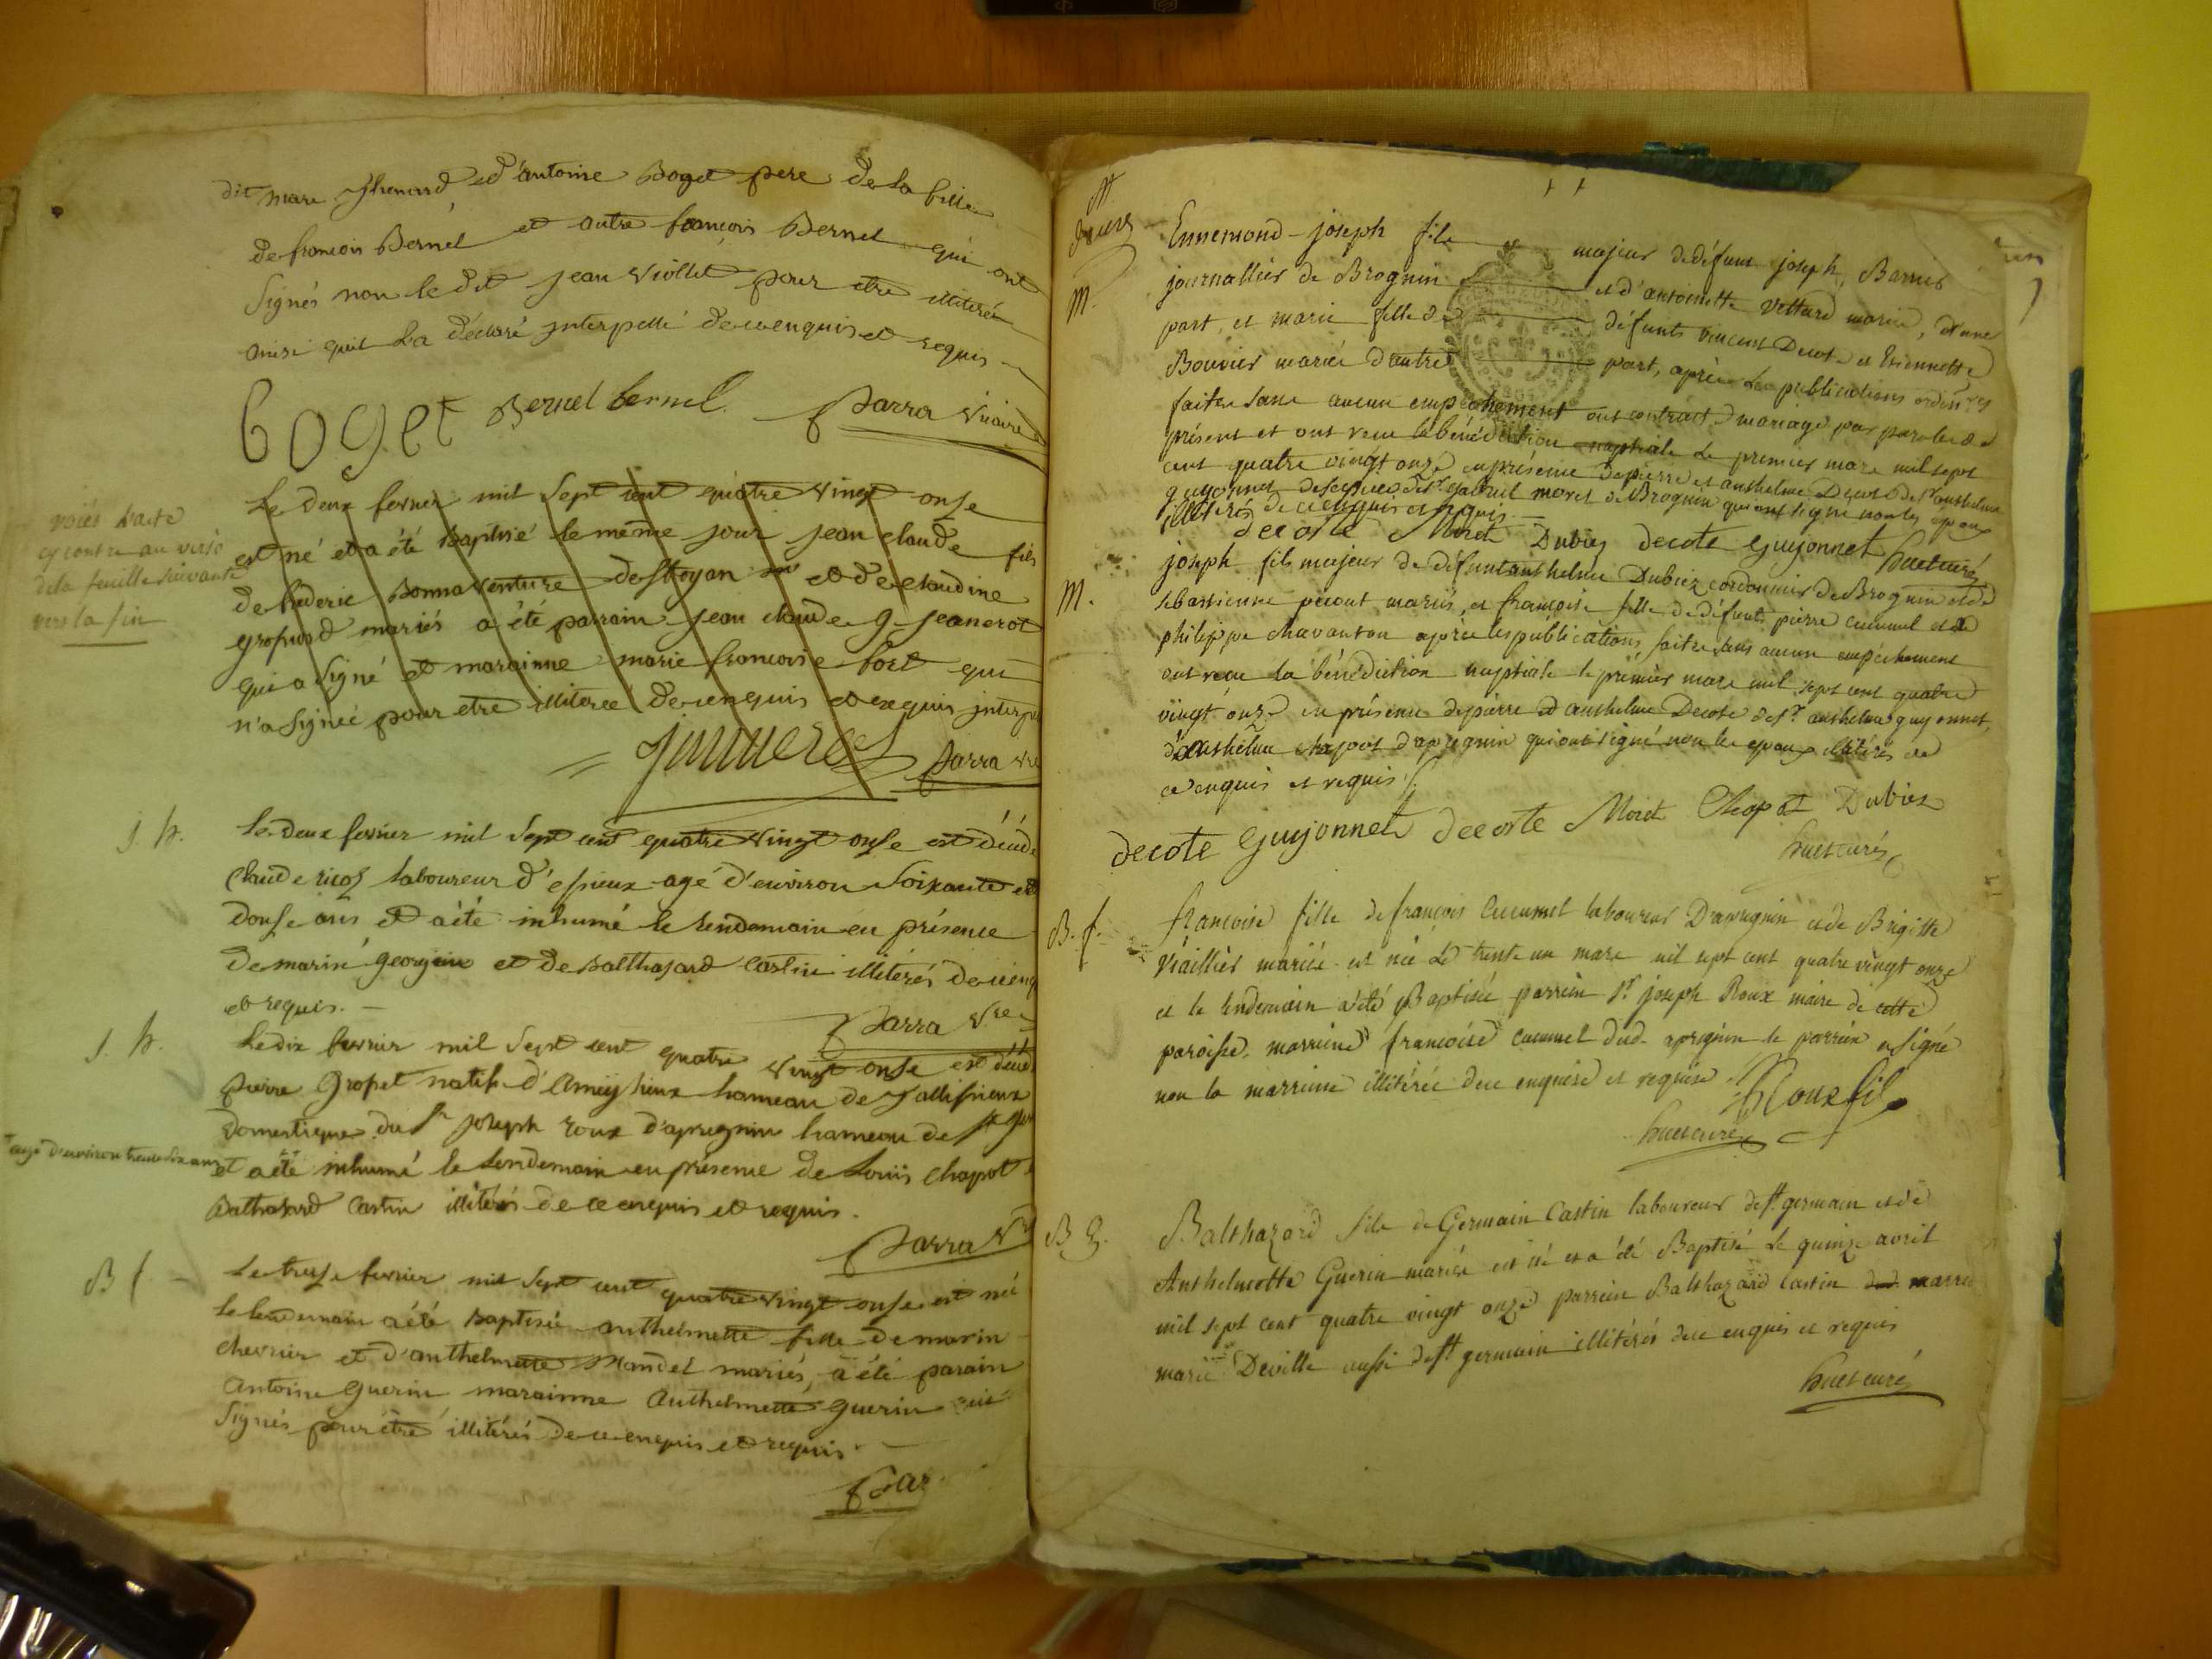 dit mare Jhenard et d'antoine Boget pere de la fille
de francois Bernel et autre francois Bernel qui ont
signés non le dit jean Viollet pour etre illiteré
ainsi quil la déclaré interpellé de ce enquis et requis
boget Bernel bernel Parra Vicaire
Le deux fevrier mil sept cent quatre vingt onse
est né et a été baptisé le même jour jean claude fils
de frederic Bonnaventure destoyan et de claudine
mariés a été parrain jean claude g jeanerot
qui a signé et marainne marie francoise fort qui
n'a signée pour etre illiterée de ce enquis et requis
Parra Vre
voiés l'acte
cy contre au verso
de la feuille suivante
vers la fin
S. h.
Le deux fevrier mil sept cent quatre vingt onse est décédé
Claude laboureur d' agé d'environ soixante et
douse ans et a été inhumé le lendemain en présence
de marin georgin et de Balthasard Castin illiterés de ce enq
et requis.
Parra Vre
S. h.
Le dix fevrier mil sept cent quatre vingt onse est décédé
pierre Gropel natif d'Ameysieux hameau de Tallissieux
domestique du Sr joseph roux d'apregnin hameau de St Ger
agé d'environ trente six ans
et a été inhumé le lendemain en présence de Louis Chapot
Balthasard Castin illiterés de ce enquis et requis.
Parra Vre
B f.
Le treise fevrier mil sept cent quatre vingt onse est née
le lendemain a été baptisée anthelmette fille de marin
chevrier et d'anthelmette Mandel mariés, a été parain
antoine Guerin marainne Anthelmette Guerin
signés pour être illitérés de ce enquis et requis
Par
M.
Ennemond-joseph fils majeur de défunt joseph Barner
journallier de Brognin et d'antoinette Vettard mariés, d'une
part, et marie fille de défunts vincent Decote et Etiennette
Bouvier mariés d'autre part, après les publications ordin.res
faites sans aucun empechement ont contracté mariage par paroles de
présent et ont recu la bénédiction nuptiale le premier mars mil sept
cent quatre vingt onze en présence de pierre et anthelme Decote de Sr anthelme
guyonnet de de Sr gabriel moret de Brognin qui ont signé non les epoux
illitérés de ce enquis et requis
decoste Moret Dubiez decote Guyonnet huet curé
M.
joseph fils majeur de défunt anthelme Dubiez cordonnier de Brognin et de
sebastienne pecout mariés, et françoise fille de défunts pierre cucumel et de
philippe chavanton après les publications, faites sans aucun empéchement
ont recu la bénédiction nuptiale le prémier mars mil sept cent quatre
vingt onze en présence de pierre et anthelme Decote de Sr anthelme guyonnet,
d'anthelme chapot d'apregnin qui ont signé non les epoux illitérés de
ce enquis et requis
decote Guyonnet decoste Moret Chapot Dubiez
huet curé
B. f.
françoise fille de françois Cucumel laboureur D'apregnin et de Brigitte
Viaillier mariés est née Le trente un mars mil sept cent quatre vingt onze
et le lendemain a été Baptisée parrein Sr joseph Roux maire de cette
paroisse, marreine françoise cucumel dud. apregnin le parrein a signé
non la marreine illitérée de ce enquise et requise
Roux fils
huet curé
B G.
Balthazard fils de Germain Castin laboureur de St germain et de
Anthelmette Guerin mariés est né et a été Baptisé Le quinze avril
mil sept cent quatre vingt onze parrein Balthazard Castin marre
marie Deville aussi de St germain illitérés de ce enquis et requis
huet curé